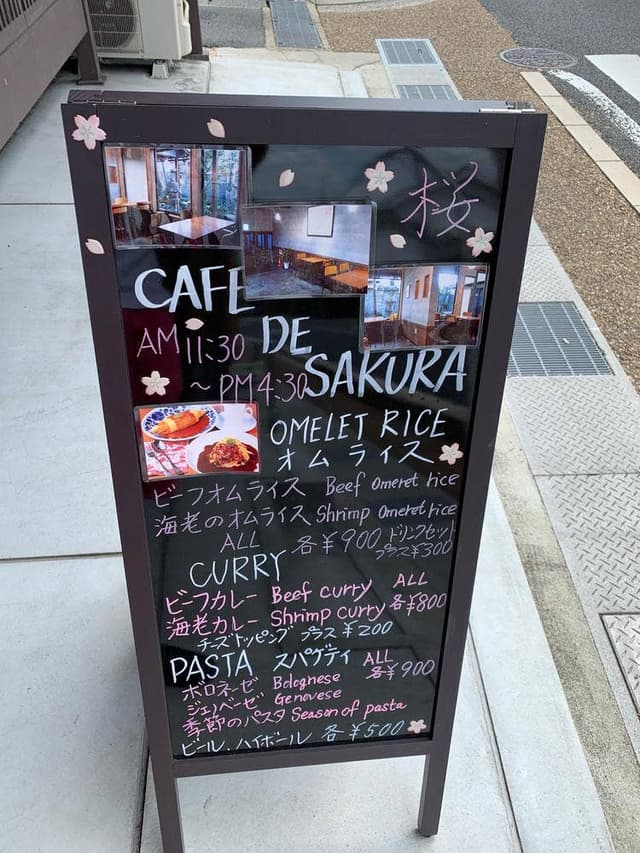 桜
CAFE
DE
SAKURA
AM 11:30
～PM4:30
OMELET RICE
オムライス
ビーフオムライス Beef omeret rice
海老のオムライス Shrimp omeret rice
ALL 各¥900 ドリンクセット
プラス¥300
CURRY
ビーフカレー Beef curry ALL
海老カレー Shrimp curry 各¥800
チーズトッピング プラス ¥200
PASTA スパゲティ ALL
各¥900
ボロネーゼ Bolognese
ジェノベーゼ Genovese
季節のパスタ Season of pasta
ビール、ハイボール 各¥500